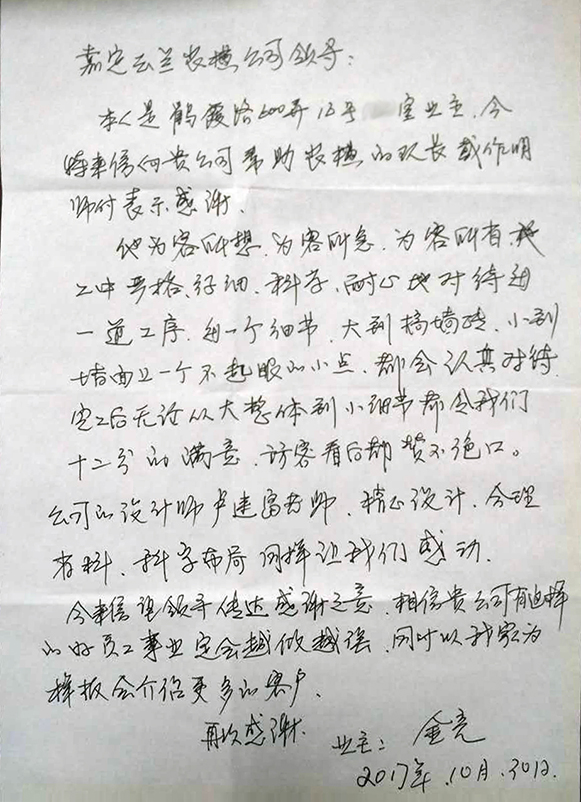 嘉定云兰装璜公司领导：
本人是鹤霞路600弄13号 室业主，今
特来信向贵公司帮助装璜的队长戴作明
师付表示感谢。
他为客所想、为客所急、为客所有，
工中严格、仔细、科学、耐心地对待每
一道工序、每一个细节，大到 墙砖，小到
墙面上一个不起眼的小点，都会认真对待，
完工后无论从大整体到小细节都令我们
十二分的满意，访客看后都赞不绝口。
公司的设计师卢建富老师，精心设计、合理
布料、科学布局同样让我们感动。
今来信让领导传达感谢之意，相信贵公司有这样
的好员工事业定会越做越强，同时以我家为
样板会介绍更多的客户。
再次感谢.
业主：金亮
2017年.10月.30日.